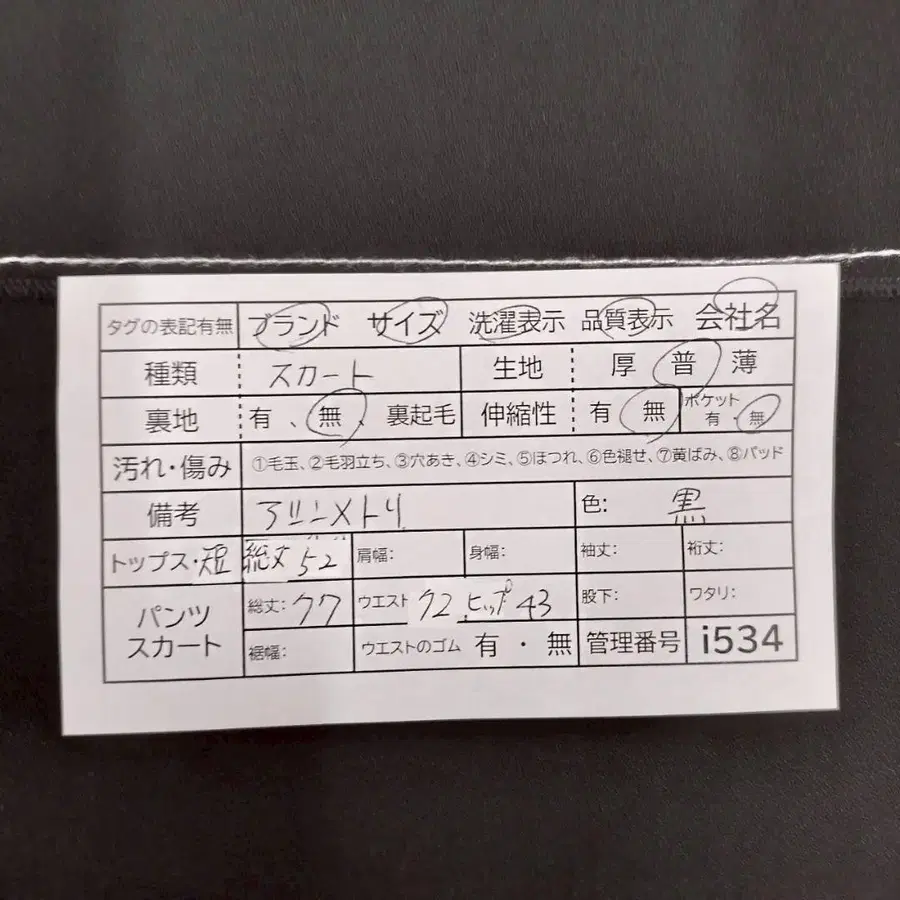 タグの表記有無 ブランド サイズ 洗濯表示 品質表示 会社名
種類 スカート 生地 厚 普 薄
裏地 有 、 無 、 裏起毛 伸縮性 有 無 ポケット 有・無
汚れ・傷み ①毛玉、②毛羽立ち、③穴あき、④シミ、⑤ほつれ、⑥色褪せ、⑦黄ばみ、⑧パッド
備考 アシンメトリ 色: 黒
トップス・短 総丈 52 肩幅: 身幅: 袖丈: 裄丈:
パンツ スカート 総丈: 77 ウエスト 72 ヒップ 43 股下: ワタリ:
裾幅: ウエストのゴム 有 ・ 無 管理番号 i534